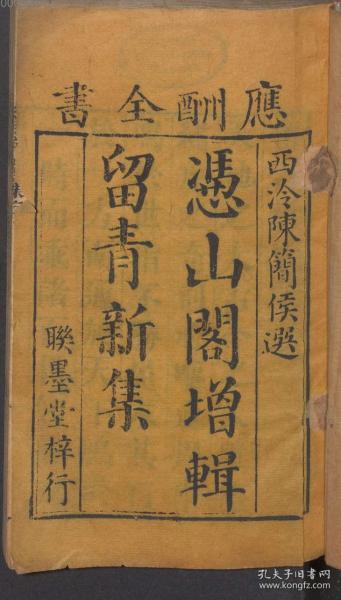 應酬全書
西泠陳簡侯選
憑山閣增輯
留青新集
聯墨堂梓行
孔夫子旧书网